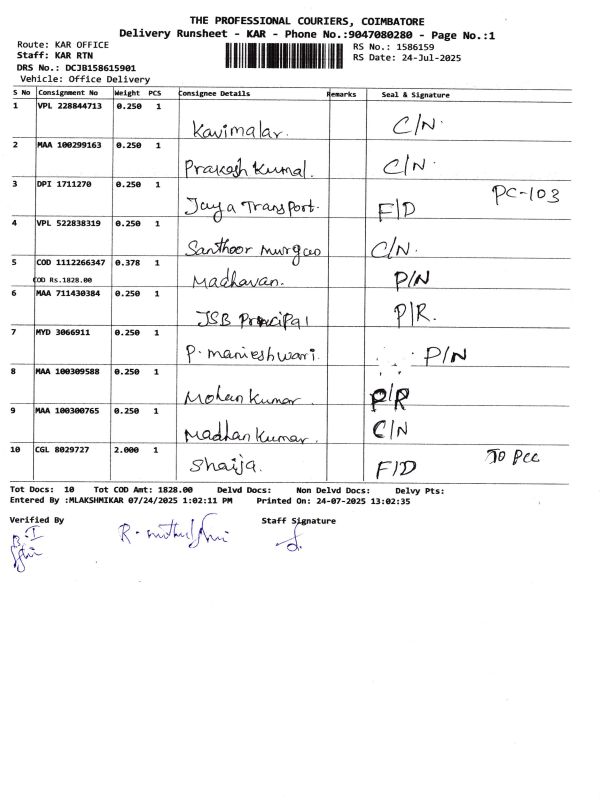 THE PROFESSIONAL COURIERS, COIMBATORE
Delivery Runsheet - KAR - Phone No.:9047080280 - Page No.:1
Route: KAR OFFICE
RS No.: 1586159
Staff: KAR RTN
RS Date: 24-Jul-2025
DRS No.: DCJB158615901
Vehicle: Office Delivery
S No Consignment No Weight PCS Consignee Details Remarks Seal & Signature
1 VPL 228844713 0.250 1 Kavimalar. C/N.
2 MAA 100299163 0.250 1 Prakash Kumal. C/N.
3 DPI 1711270 0.250 1 Jaya Transport. F/D PC-103
4 VPL 522838319 0.250 1 Santhoor C/N.
5 COD 1112266347 0.378 1 Madhavan. P/N
COD Rs.1828.00
6 MAA 711430384 0.250 1 JSB Principal P/R.
7 MYD 3066911 0.250 1 P. manieshwari. P/N
8 MAA 100309588 0.250 1 Mohan Kumar P/R
9 MAA 100300765 0.250 1 Madhan Kumar. C/N
10 CGL 8029727 2.000 1 Shaija. F/D TO PCC
Tot Docs: 10 Tot COD Amt: 1828.00 Delvd Docs: Non Delvd Docs: Delvy Pts:
Entered By :MLAKSHMIKAR 07/24/2025 1:02:11 PM Printed On: 24-07-2025 13:02:35
Verified By
Staff Signature